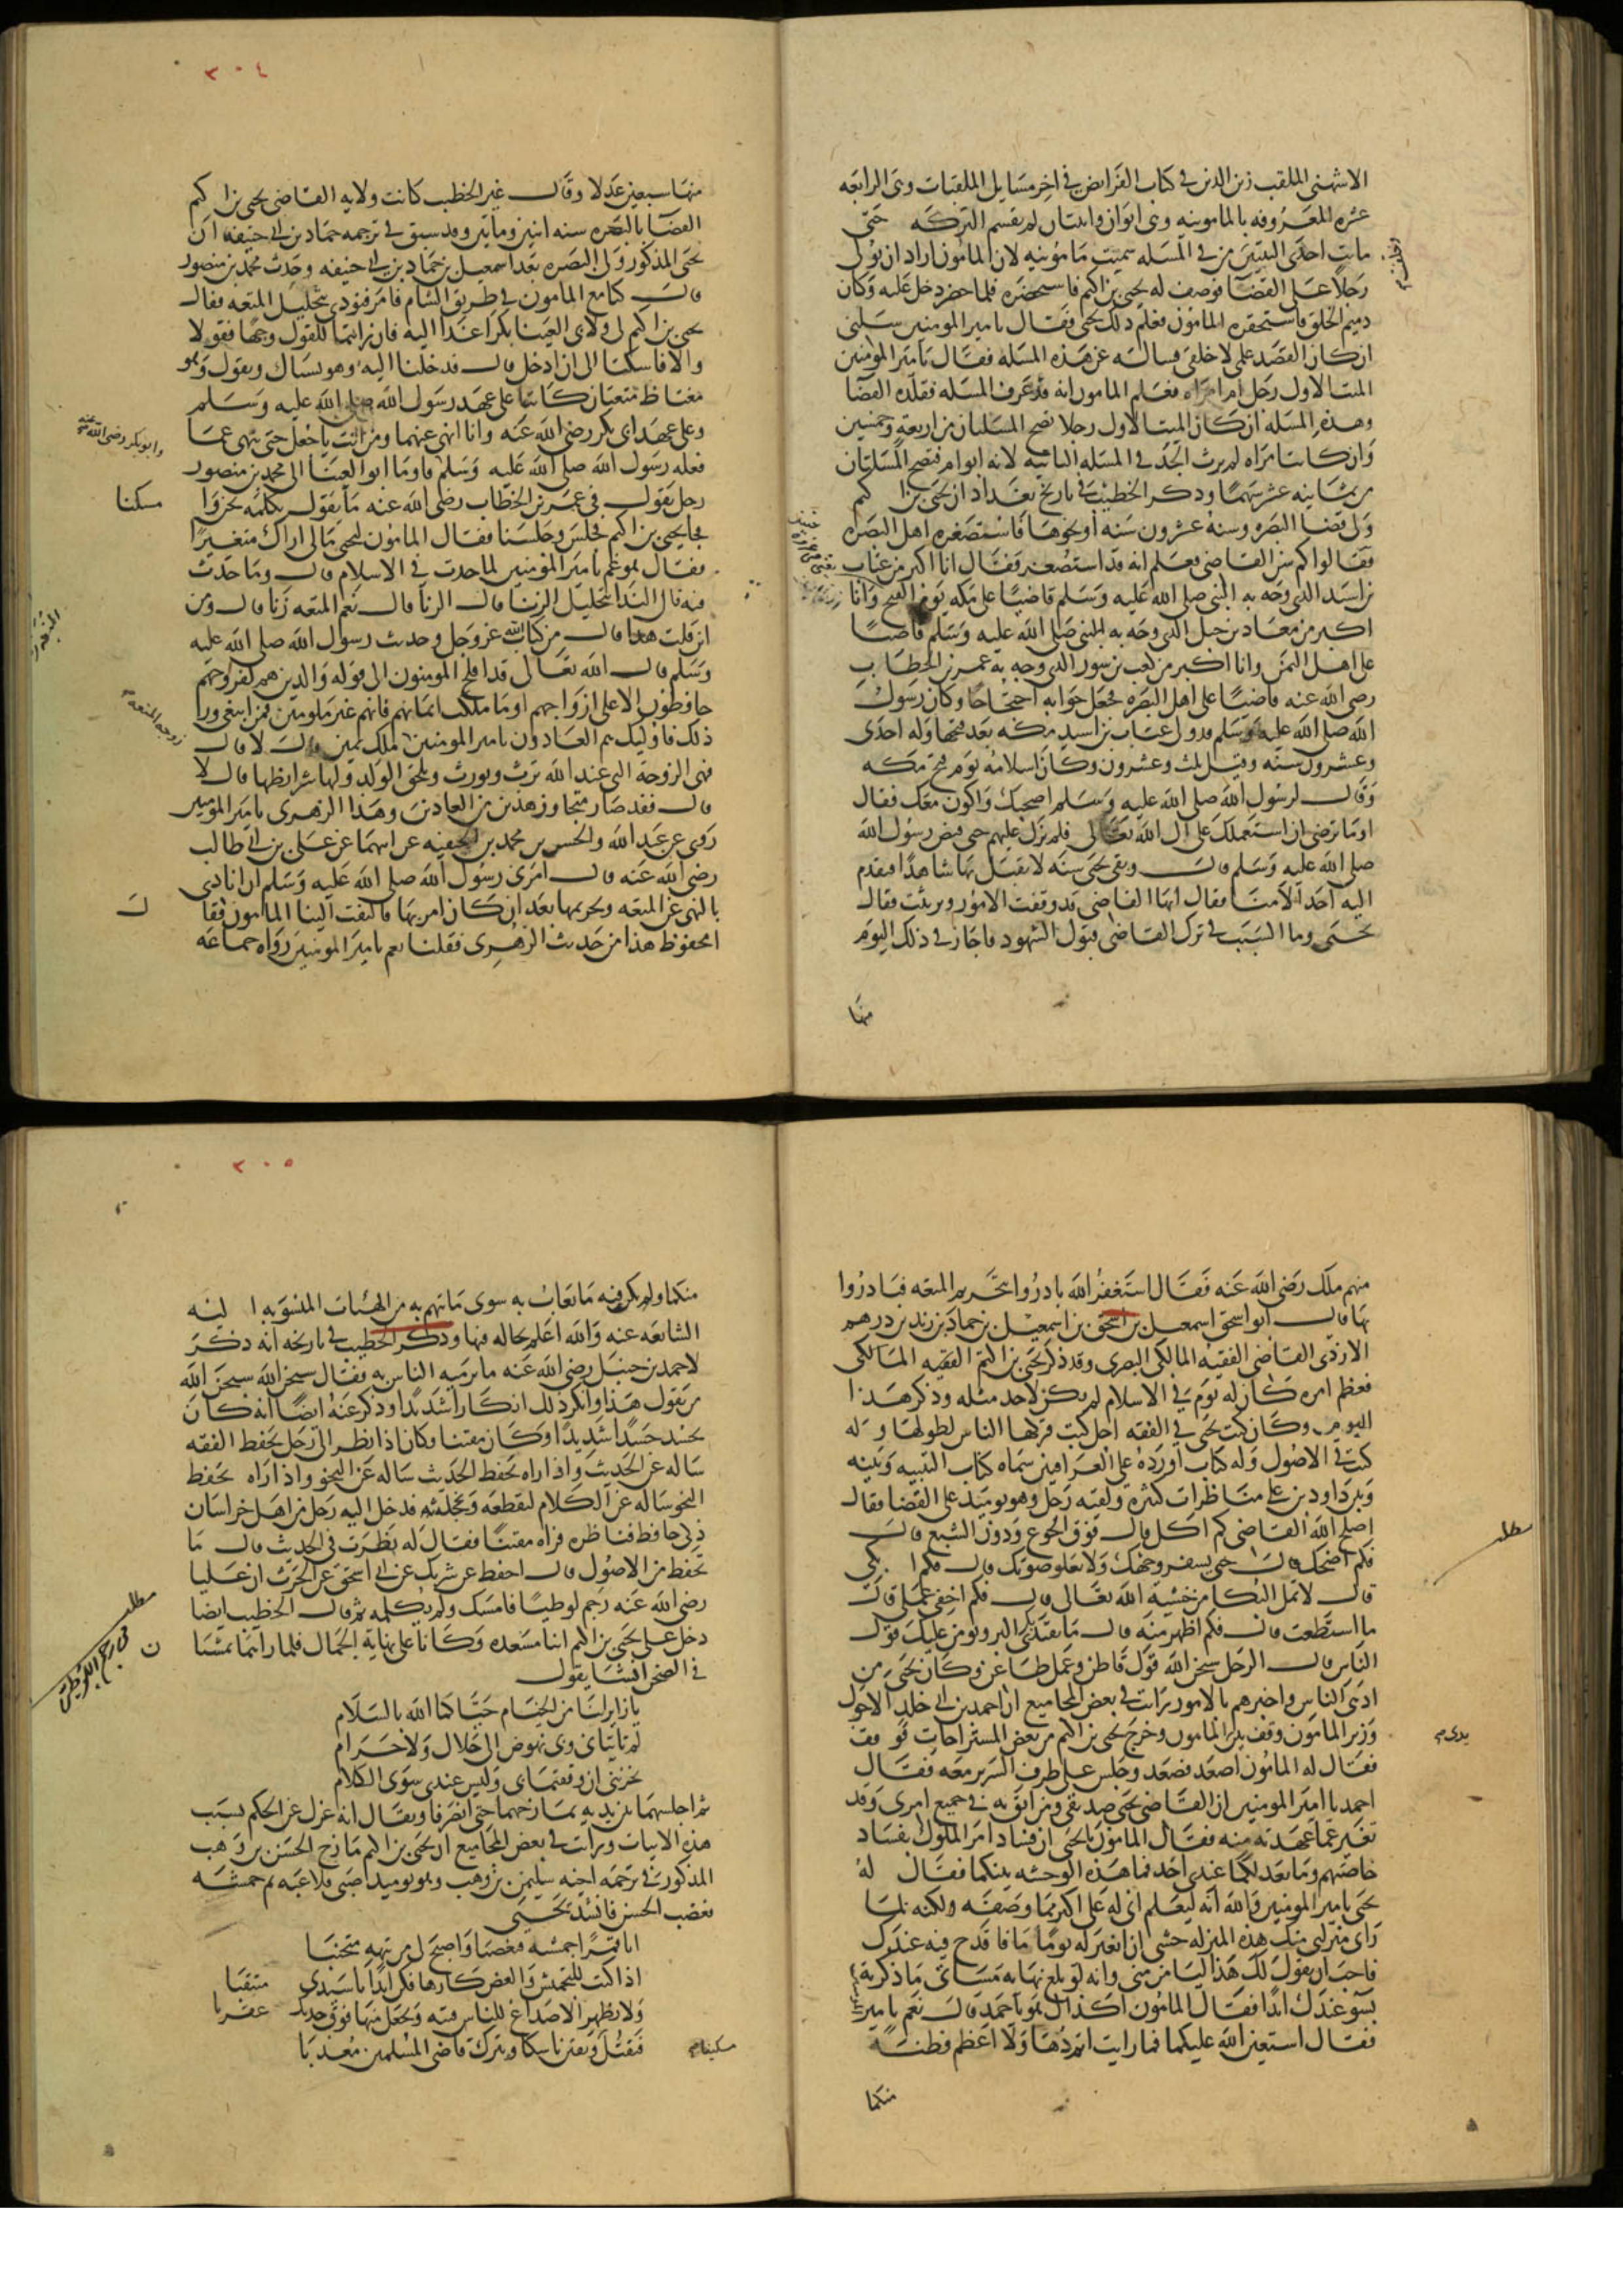 الاشنهى الملقب زين الدين في كتاب الفرائض في اخر مسايل الملقبات وهى الرابعه
عشره المعروفه بالمامونيه وهى ابوان وابنتان لم تقسم التركه حتى
ماتت احدى البنتين من في المسله سميت مامونيه لان المامون اراد ان يولى
رجلا على القضا فوصف له يحيى بن اكثم فاستحضره فلما حضر دخل عليه وكان
دميم الخلق فاستحقره المامون فعلم ذلك يحيى فقال يا امير المومنين سلنى
ان كان القصد علمى لا خلقى فساله عن هذه المسله فقال يا امير المومنين
الميت الاول رجل ام امراه فعلم المامون انه قد عرف المسله فقلده القضا
وهذه المسله ان كان الميت الاول رجلا تصح المسلتان من اربعة وخمسين
وان كانت امراه لم يرث الجد في المسله الثانيه لانه ابو ام فتصح المسلتان
من ثمانيه عشر سهما وذكر الخطيب في تاريخ بغداد ان يحيى بن اكثم
ولى قضا البصره وسنه عشرون سنه او نحوها فاستصغره اهل البصره
فقالوا كم سن القاضى فعلم انه قد استصغر فقال انا اكبر من عتاب
بن اسيد الذى وجه به النبى صلى الله عليه وسلم قاضيا على مكه يوم الفتح وانا
اكبر من معاذ بن جبل الذى وجه به النبى صلى الله عليه وسلم قاضيا
على اهل اليمن وانا اكبر من كعب بن سور الذى وجه به عمر بن الخطاب
رضى الله عنه قاضيا على اهل البصره فجعل جوابه احتجاجا وكان رسول
الله صلى الله عليه وسلم قد ولى عتاب بن اسيد مكه بعد فتحها وله احدى
وعشرون سنه وقيل ثلث وعشرون وكان اسلامه يوم فتح مكه
وقال لرسول الله صلى الله عليه وسلم اصحبك واكون معك فقال
اوما ترضى ان استعملك على آل الله تعالى فلم يزل عليهم حتى قبض رسول الله
صلى الله عليه وسلم قال وبقى يحيى سنه لا يقبل بها شاهدا فتقدم
اليه احد الامنا فقال ايها القاضى قد وقفت الامور وتريثت فقال
يحيى وما السبب قال في ترك القاضى قبول الشهود فاجاز في ذلك اليوم
منها
٣٠٤
منها سبعين عدلا وقال غير الخطيب كانت ولايه القاضى يحيى بن اكثم
القضا بالبصره سنه اثنين ومايتين وقد سبق في ترجمه حماد بن ابى حنيفه ان
يحيى المذكور ولى البصره بعد اسمعيل بن حماد بن ابى حنيفه وحدث محمد بن منصور
قال كنا مع المامون في طريق الشام فامر فنودى بتحليل المتعه فقال
يحيى بن اكثم لى ولابى العينا بكرا غدا اليه فان رايتما للقول وجها فقولا
والا فاسكتا الى ان ادخل قال فدخلنا اليه وهو يستاك ويقول وهو
مغتاظ متعتان كانتا على عهد رسول الله صلى الله عليه وسلم
وعلى عهد ابى بكر رضى الله عنه وانا انهى عنهما ومن انت يا جعل حتى تنهى عما
فعله رسول الله صلى الله عليه وسلم فاوما ابو العينا الى محمد بن منصور
وابو بكر رضى الله عنه
رجل يقول في عمر بن الخطاب رضى الله عنه ما يقول نكلمه نحن فا
مسكنا
فجا يحيى بن اكثم فجلس وجلسنا فقال المامون ليحيى مالى اراك متغيرا
فقال هو غم يا امير المومنين لما حدث في الاسلام قال وما حدث
فيه قال الندا بتحليل الزنا قال الزنا قال نعم المتعه زنا قال ومن
اين قلت هذا قال من كتاب الله عز وجل وحديث رسول الله صلى الله عليه
وسلم قال الله تعالى قد افلح المومنون الى قوله والذين هم لفروجهم
حافظون الا على ازواجهم او ما ملكت ايمانهم فانهم غير ملومين فمن ابتغى ورا
ذلك فاوليك هم العادون يا امير المومنين زوجه المتعه ملك يمين قال لا قال
فهى الزوجه التى عند الله ترث وتورث ويلحق الولد ولها شرايطها قال لا
قال فقد صار متجاوز هذين من العادين وهذا الزهرى يا امير المومنين
روى عن عبد الله والحسن بن محمد بن الحنفيه عن ابيهما عن على بن ابى طالب
رضى الله عنه قال امرنى رسول الله صلى الله عليه وسلم ان انادى
بالنهى عن المتعه وتحريمها بعد ان كان امر بها فالتفت الينا المامون فقا ل
امحفوظ هذا من حديث الزهرى فقلنا نعم يا امير المومنين رواه جماعه
منهم ملك رضى الله عنه فقال استغفر الله بادروا بتحريم المتعه فبادروا
بها قال ابو اسحق اسمعيل بن اسحق بن اسمعيل بن حماد بن زيد بن درهم
الازدى القاضى الفقيه المالكى البصرى وقد ذكر يحيى بن اكثم الفقيه المالكى
فعظم امره كان له يوم في الاسلام لم يكن لاحد مثله وذكر هذا
اليوم وكان كتب يحيى في الفقه اجل كتب فتركها الناس لطولها وله
كتب في الاصول وله كتاب اورده على العراقيين سماه كتاب التنبيه وبينه
وبين داود بن على مناظرات كثيره ولقيه رجل وهو يوميذ على القضا فقال
اصلح الله القاضى كم آكل قال فوق الجوع ودون الشبع قال
فكم اضحك قال حتى يسفر وجهك ولا يعلو صوتك قال فكم ابكى
قال لا تمل البكا من خشيه الله تعالى قال فكم اخفى عملى قال
ما استطعت قال فكم اظهر منه قال ما يقتدى بك البر ويومن عليك قول
الناس قال الرجل سبحن الله قول قاطن وعمل ظاعن وكان يحيى من
ادهى الناس واخبرهم بالامور رايت في بعض المجاميع ان احمد بن ابى خلد الاحول
وزير المامون وقف بين يدى المامون وخرج يحيى بن اكثم من بعض المستراحات فوقف
فقال له المامون اصعد فصعد وجلس على طرف السرير معه فقال
احمد يا امير المومنين ان القاضى يحيى صديقى وممن اثق به في جميع امرى وقد
تغير عما عهدته منه فقال المامون يا يحيى ان فساد امر الملوك بفساد
خاصتهم وما يعدلكما عندى احد فما هذه الوحشه بينكما فقال له
يحيى يا امير المومنين والله انه ليعلم انى له على اكثر مما وصفه ولكنه لما
راى منزلتى منك هذه المنزله خشى ان اتغير له يوما ما فاقدح فيه عندك
فاحب ان يقول لك هذا ليامن منى وانه لو بلغ نهايه مساتى ما ذكرته
بسو عندك ابدا فقال المامون اكذلك هو يا احمد قال نعم يا امير
فقال استعين الله عليكما فما رايت اتم دهاء ولا اعظم فطنه
منكما
مطلب
٣٠٥
منكما ولم يكن فيه ما يعاب به سوى ما يتهم به من الهنات المنسوبه اليه
الشايعه عنه والله اعلم بحاله فيها وذكر الخطيب في تاريخه انه ذكر
لاحمد بن حنبل رضى الله عنه ما يرميه الناس به فقال سبحن الله سبحن الله
من يقول هذا وانكر ذلك انكارا شديدا وذكر عنه ايضا انه كان
يحسد حسدا شديدا وكان مفتنا وكان اذا نظر الى رجل يحفظ الفقه
ساله عن الحديث واذا راه يحفظ الحديث ساله عن النحو واذا راه يحفظ
النحو ساله عن الكلام ليقطعه ويخجله فدخل اليه رجل من اهل خراسان
ذكى حافظ فناظره فراه مفتنا فقال له نظرت في الحديث قال ما
تحفظ من الاصول قال احفظ عن شريك عن ابى اسحق عن الحرث ان عليا
رضى الله عنه رجم لوطيا فامسك ولم يكلمه ثم قال الخطيب ايضا
دخل على يحيى بن اكثم ابنا مسعده وكانا على نهاية الجمال فلما راهما يمشيا ن
في الصحن انشا يقول
يا زايرينا من الخيام حياكما الله بالسلام
لم تاتيانى وبى نهوض الى حلال ولا حرام
يحزننى ان وقفتما بى وليس عندى سوى الكلام
ثم اجلسهما بين يديه يمازحهما حتى انصرفا ويقال انه عزل عن الحكم بسبب
هذه الابيات ورايت في بعض المجاميع ان يحيى بن اكثم مازح الحسن بن وهب
المذكور في ترجمه اخيه سليمن بن وهب وهو يوميذ صبى فلاعبه ثم جمشه
فغضب الحسن فانشد يحيى
ايا قمرا جمشته فتغضبا واصبح لى من تيهه متجنبا
اذا كنت للتجميش والعض كارها فكن ابدا يا سيدى متنقبا
ولا تظهر الاصداغ للناس فتنه وتجعل منها فوق خديك عقربا
فتقتل مسكينا وتفتن ناسكا وتترك قاضى المسلمين معذبا
مطلب
في رجم اللوطى